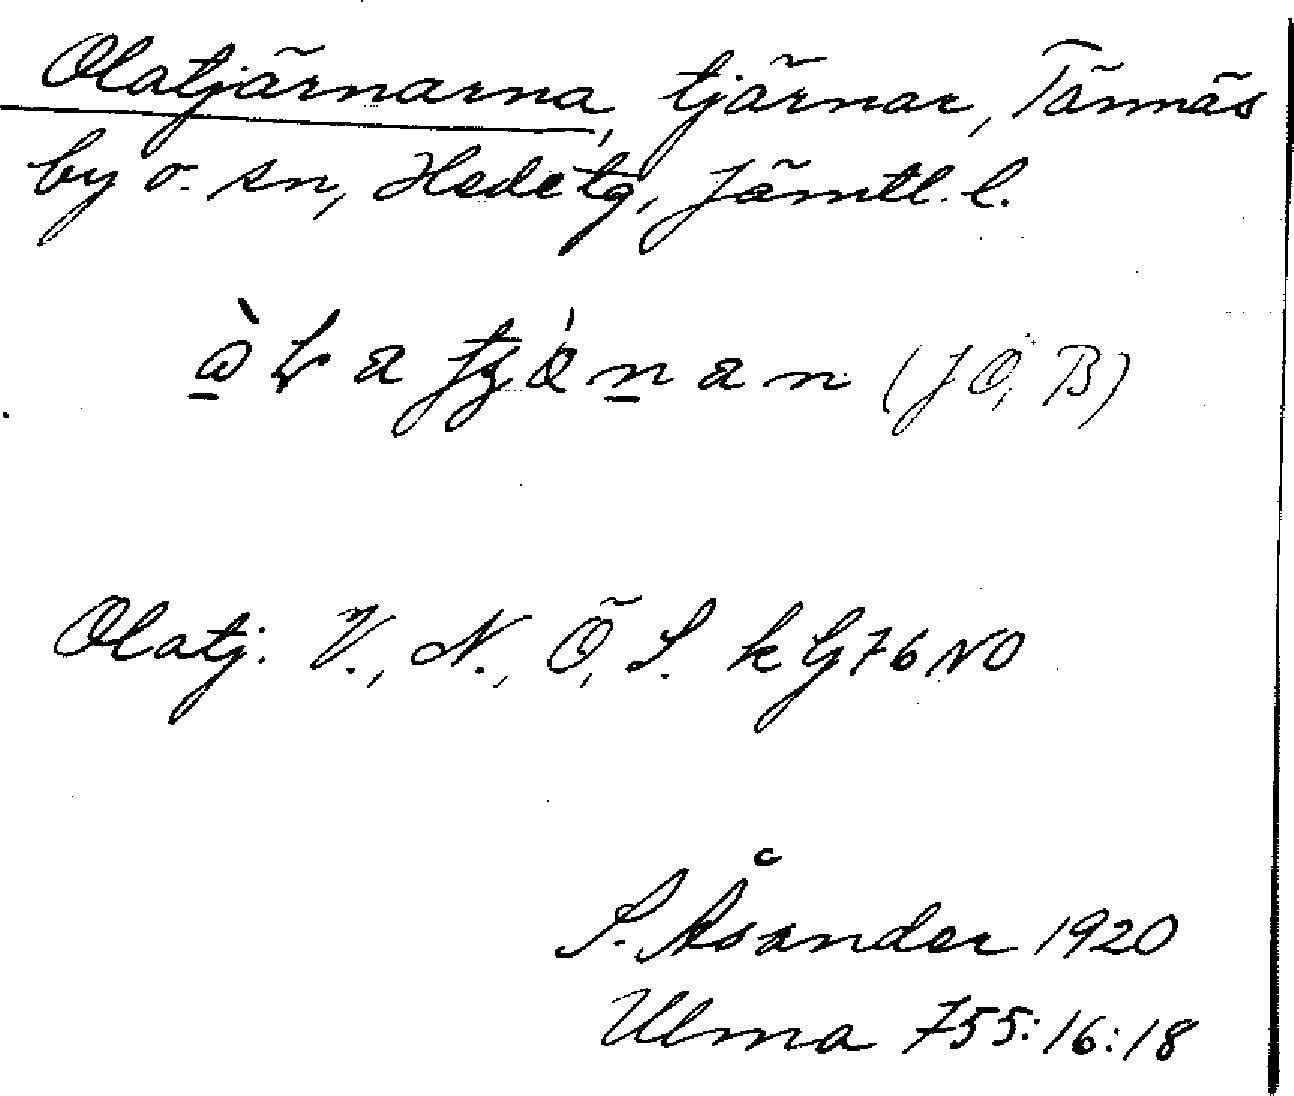 Olatjärnarna, tjärnar, Tännäs
by o. sn, Hede tg, Jämtl. l.
(JO, B)
Olatj: V., N., Ö, S. kG76NO
S. Åsander 1920
Ulma 755:16:18